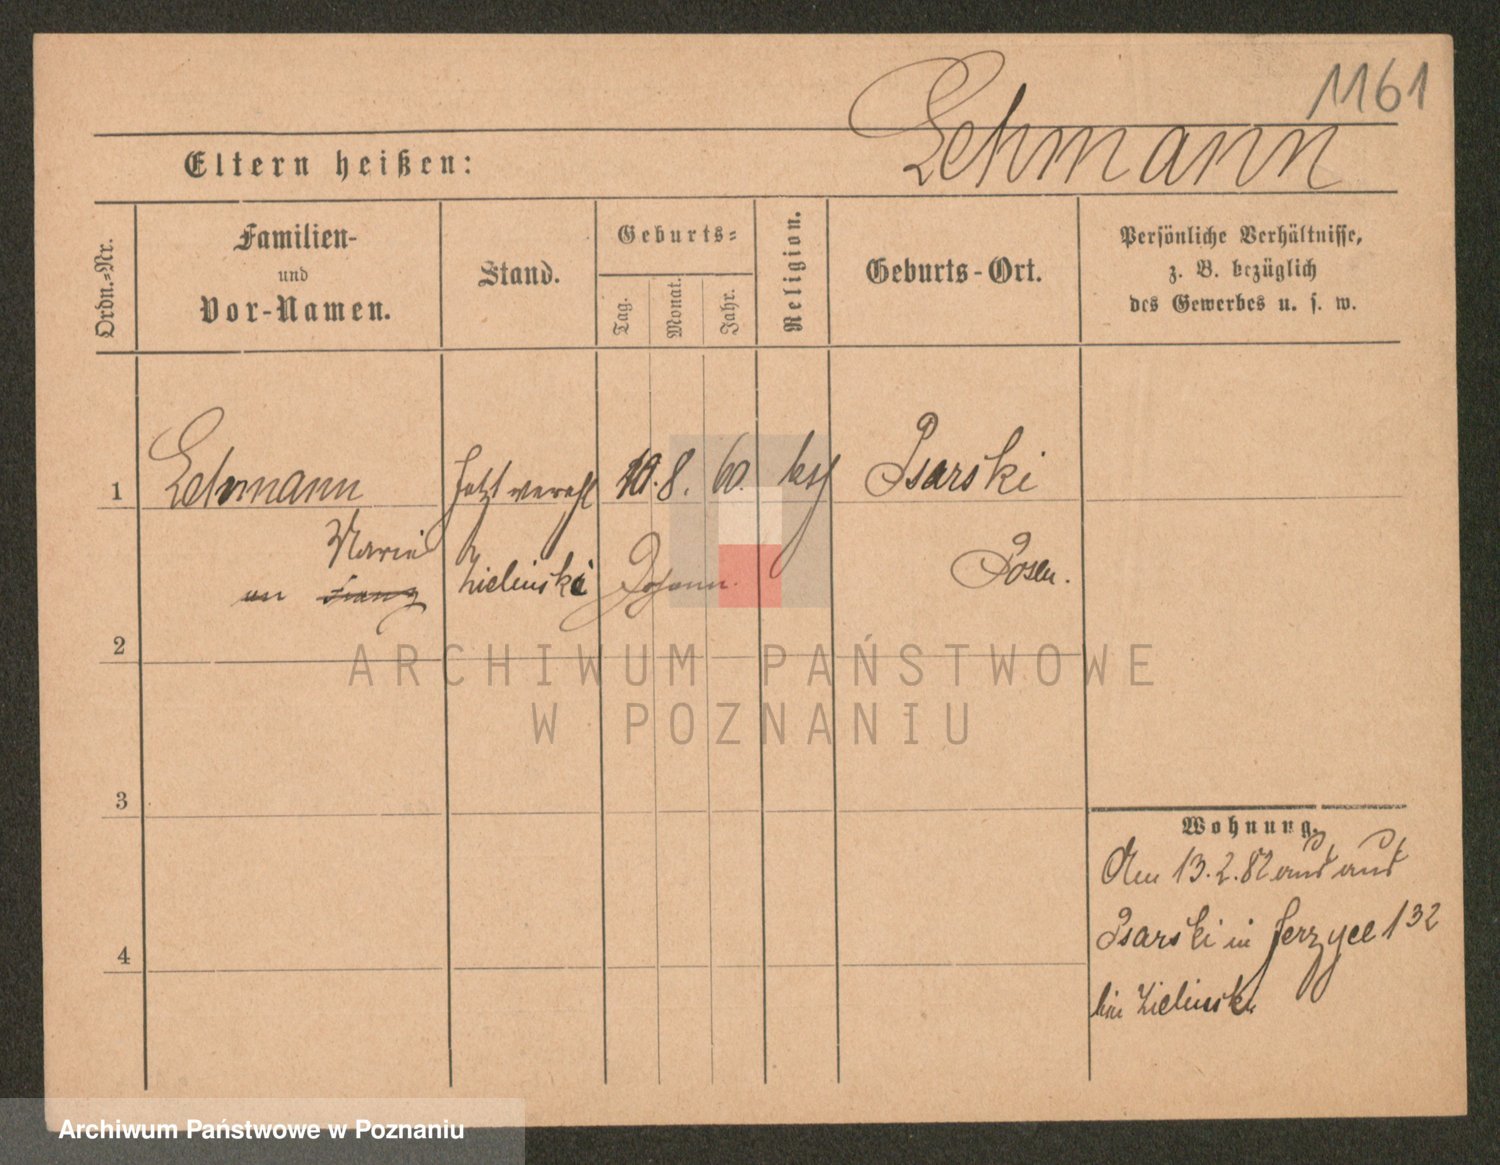 1161
Lehmann
Eltern heißen:
Ordn.-Nr.
Familien-
und
Vor-Namen.
Stand.
Geburts-
Tag.
Monat.
Jahr.
Religion.
Geburts-Ort.
Persönliche Verhältnisse,
z. B. bezüglich
des Gewerbes u. s. w.
1 Lehmann jetzt verehl 10. 8. 60. kth Psarski
Marie Zielinski Johann. Posen.
2
ARCHIWUM PAŃSTWOWE
W POZNANIU
3
Wohnung.
Am 13.2.82
Psarski in Jerzyce 132
bei Zielinski
4
Archiwum Państwowe w Poznaniu